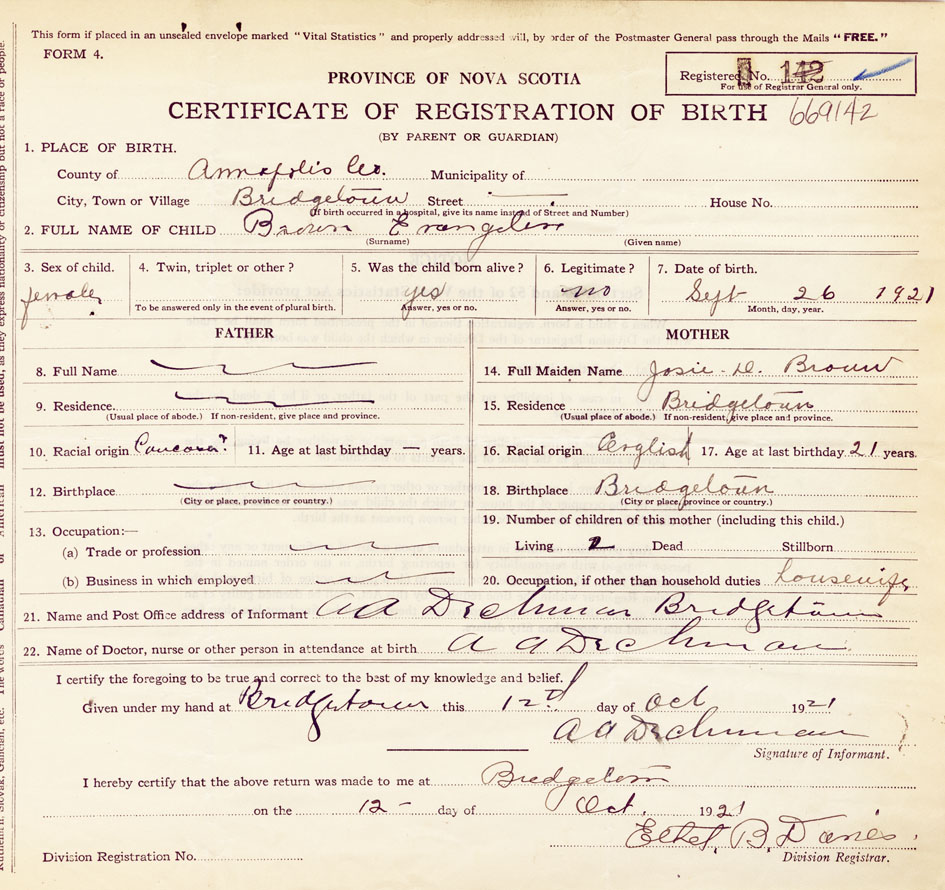 This form if placed in an unsealed envelope marked "Vital Statistics" and properly addressed will, by order of the Postmaster General pass through the Mails "FREE."
FORM 4.
Registered No. 142
For use of Registrar General only.
PROVINCE OF NOVA SCOTIA
CERTIFICATE OF REGISTRATION OF BIRTH 669142
(BY PARENT OR GUARDIAN)
1. PLACE OF BIRTH.
County of Annapolis Co. Municipality of
City, Town or Village Bridgetown Street House No.
(If birth occurred in a hospital, give its name instead of Street and Number)
2. FULL NAME OF CHILD Brown Evangeline
(Surname) (Given name)
3. Sex of child. 4. Twin, triplet or other? 5. Was the child born alive? 6. Legitimate? 7. Date of birth.
female yes no Sept 26 1921
To be answered only in the event of plural birth. Answer, yes or no. Answer, yes or no. Month, day, year.
FATHER MOTHER
8. Full Name 14. Full Maiden Name Josie D. Brown
9. Residence 15. Residence Bridgetown
(Usual place of abode.) If non-resident, give place and province. (Usual place of abode.) If non-resident, give place and province.
10. Racial origin 11. Age at last birthday — years. 16. Racial origin English 17. Age at last birthday 21 years.
12. Birthplace 18. Birthplace Bridgetown
(City or place, province or country.) (City or place, province or country.)
13. Occupation:— 19. Number of children of this mother (including this child.)
(a) Trade or profession Living 2 Dead Stillborn
(b) Business in which employed 20. Occupation, if other than household duties housewife
21. Name and Post Office address of Informant A A Dechman Bridgetown
22. Name of Doctor, nurse or other person in attendance at birth A A Dechman
I certify the foregoing to be true and correct to the best of my knowledge and belief.
Given under my hand at Bridgetown this 12 day of Oct 1921
A A Dechman
Signature of Informant.
I hereby certify that the above return was made to me at Bridgetown
on the 12 – day of Oct. 1921
Ethel B. Davies
Division Registration No. Division Registrar.